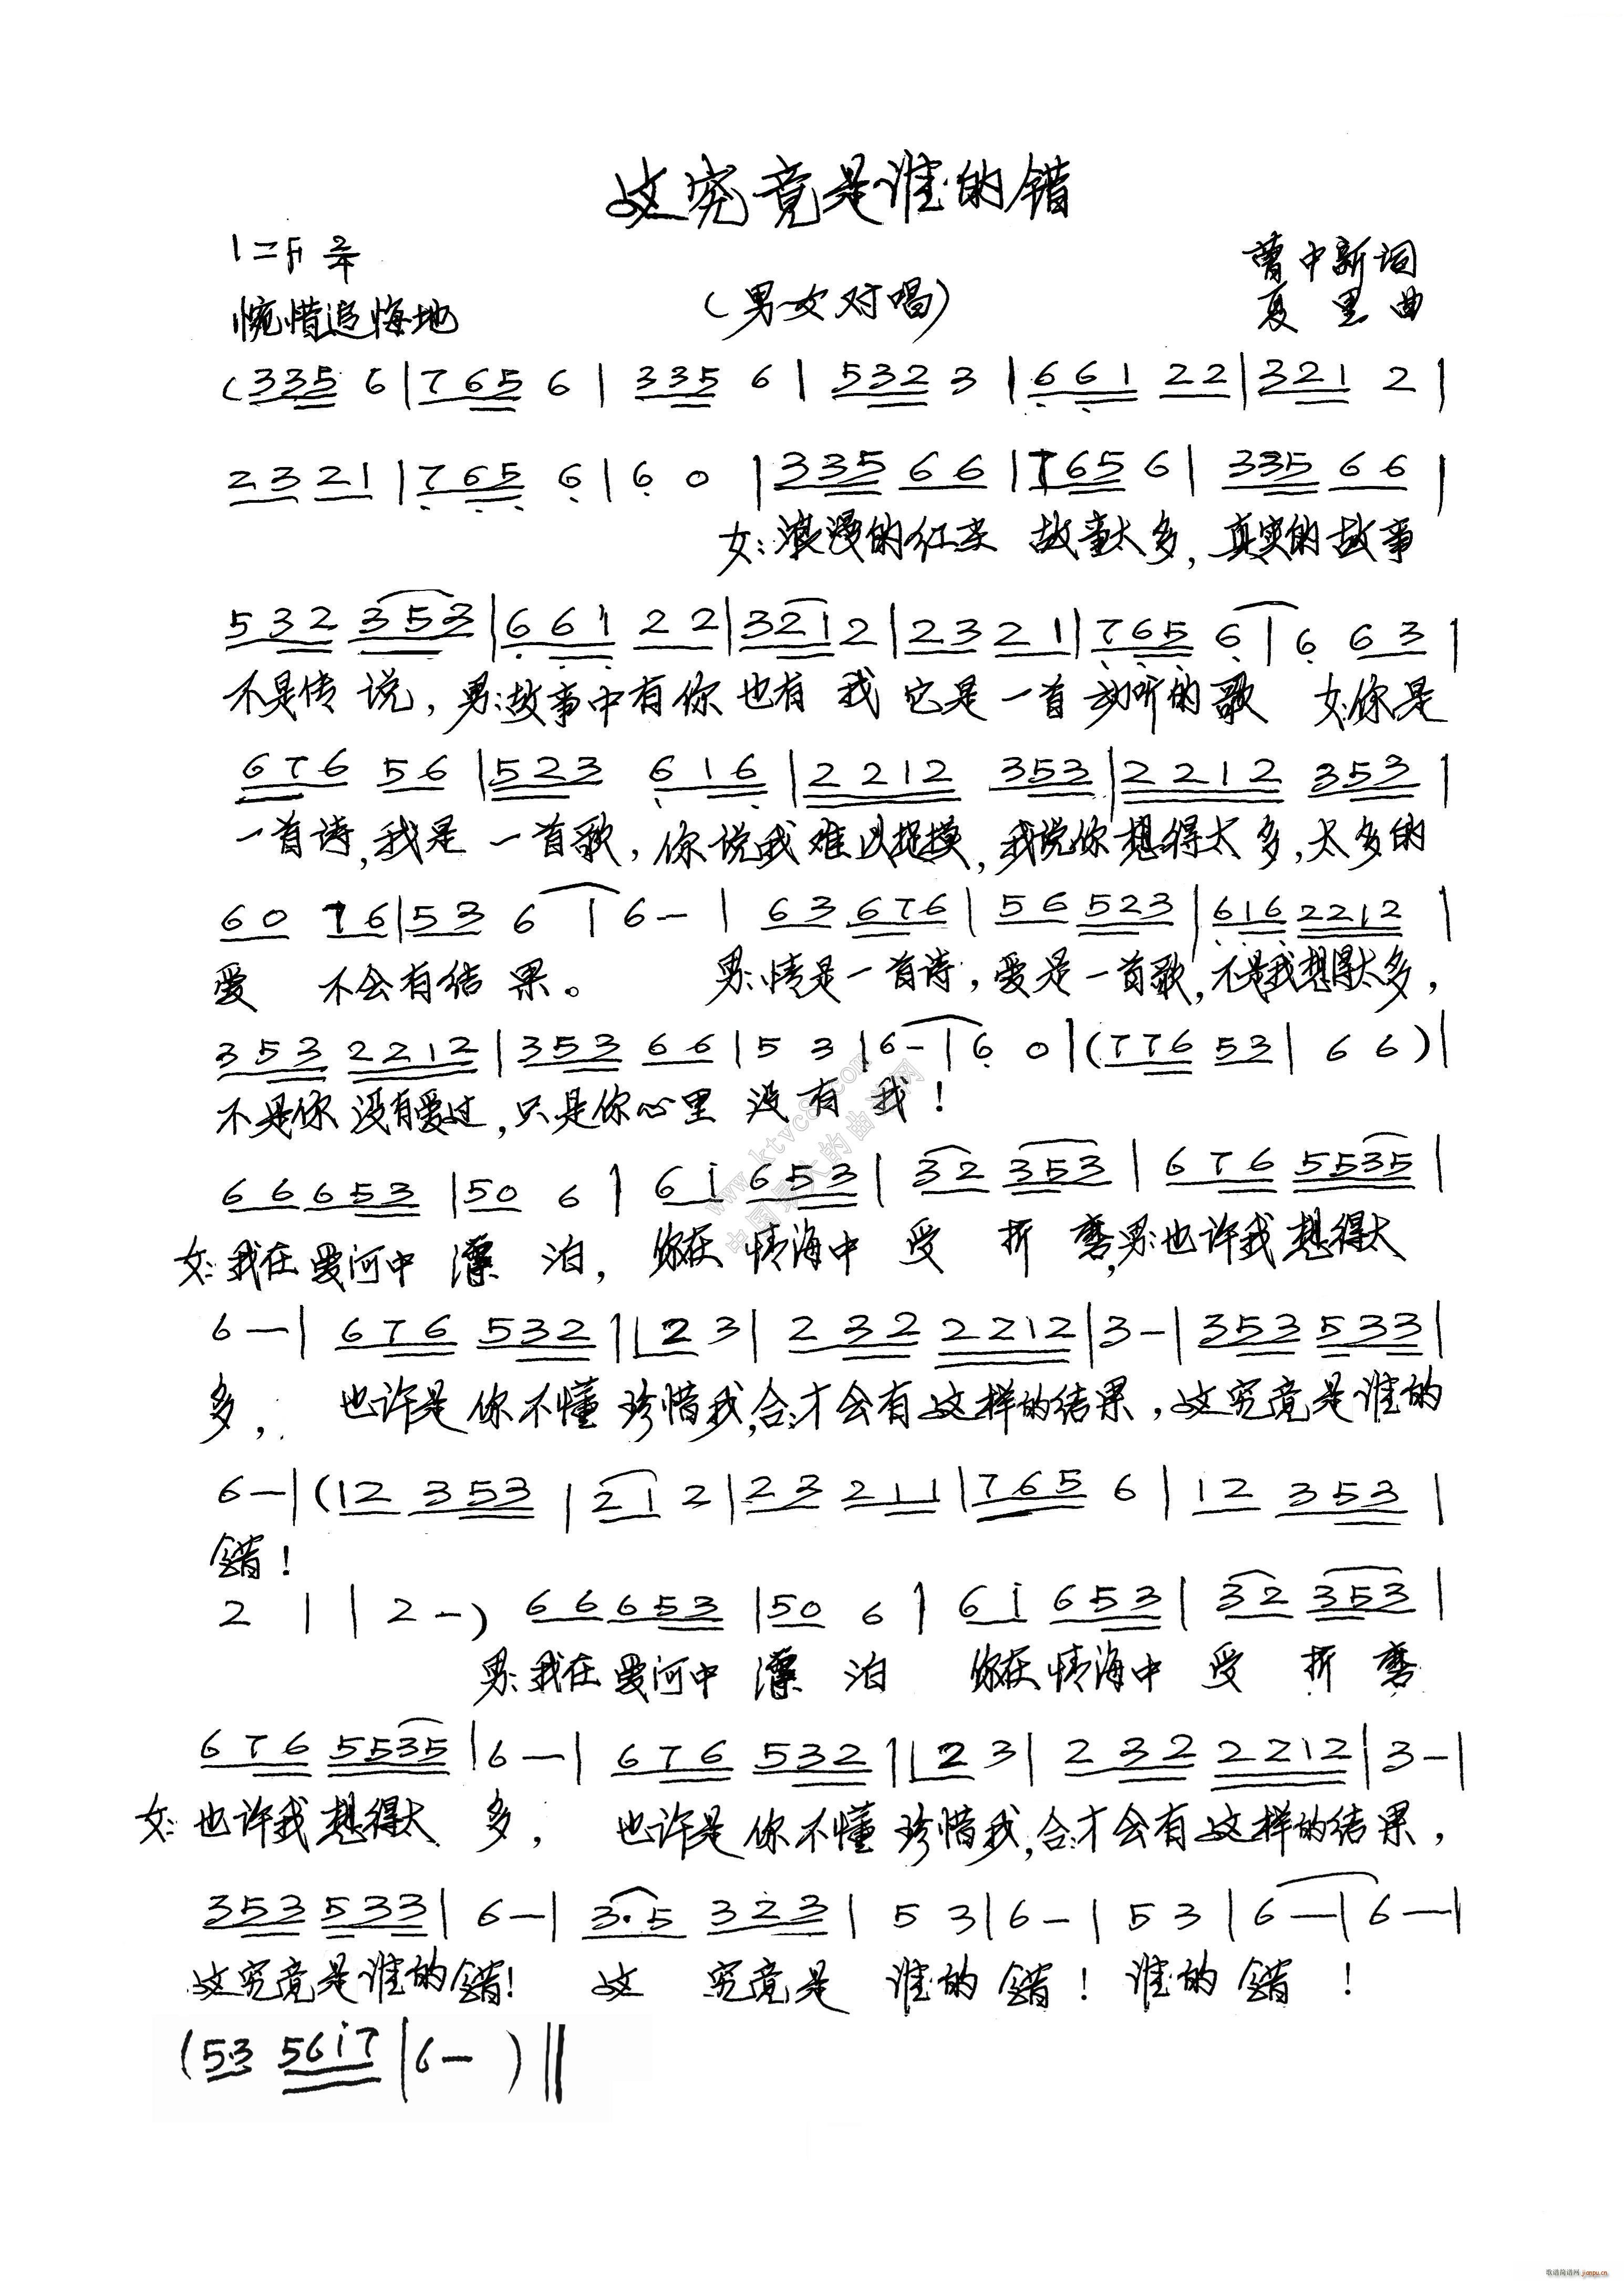 这究竟是谁的错
1=F 2/4
曹中新词
惋惜追悔地
(男女对唱)
夏里曲
(335 6|765 6|335 6|532 3|661 22|321 2|
23 21|765 6|6 0|335 66|765 6|335 66|
女:浪漫的红尘 故事太多,真实的故事
532 353|661 22|321 2|23 21|765 6|6 63|
不是传说,男:故事中有你也有我 它是一首动听的歌 女:你是
676 56|523 616|2212 353|2212 353|
一首诗,我是一首歌,你说我难以捉摸,我说你想得太多,太多的
60 76|53 6|6-|63 676|56 523|616 2212|
爱 不会有结果。 男:情是一首诗,爱是一首歌,不是我想得太多,
353 2212|353 66|5 3|6-|6 0|(776 53|6 6)|
不是你没有爱过,只是你心里没有我!
www.ktvc8.com
中国最大的曲谱网
66 653|50 6|6i 653|32 353|676 5535|
女:我在爱河中漂泊,你在情海中受折磨,男:也许我想得太
6-|676 532|12 3|232 2212|3-|353 533|
多, 也许是你不懂珍惜我,合:才会有这样的结果,这究竟是谁的
6-|(12 353|21 2|23 211|765 6|12 353|
错!
2 1|2-) 66 653|50 6|6i 653|32 353|
男:我在爱河中漂泊 你在情海中受折磨
676 5535|6-|676 532|12 3|232 2212|3-|
女:也许我想得太多, 也许是你不懂珍惜我,合:才会有这样的结果,
353 533|6-|3·5 323|5 3|6-|5 3|6-|6-|
这究竟是谁的错! 这究竟是谁的错!谁的错!
(53 56i7|6-)‖
歌谱简谱网 jianpu.cn